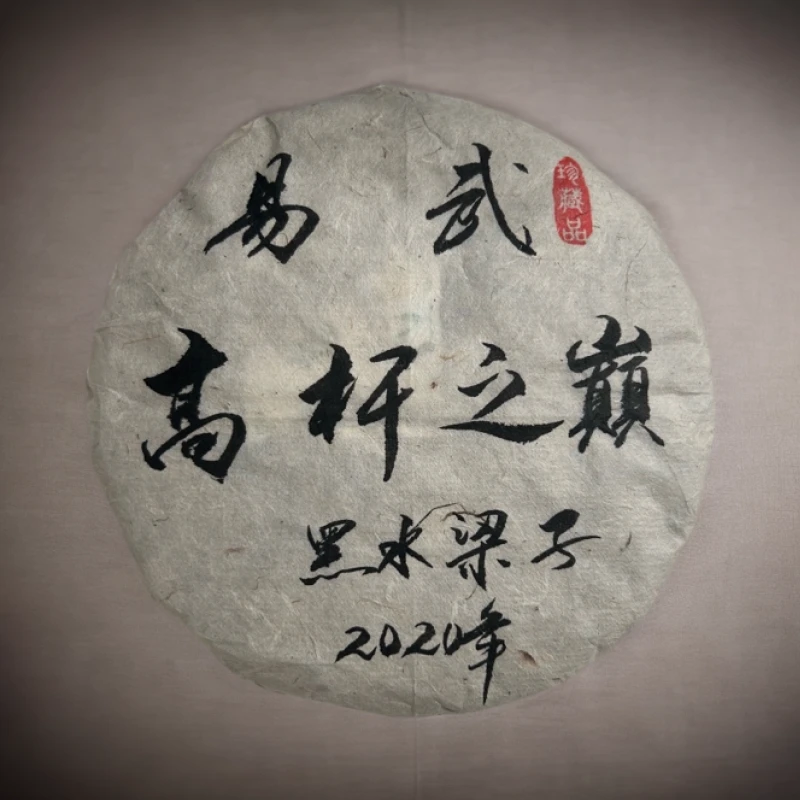 易武
珍藏品
高杆之巅
黑水梁子
2020年